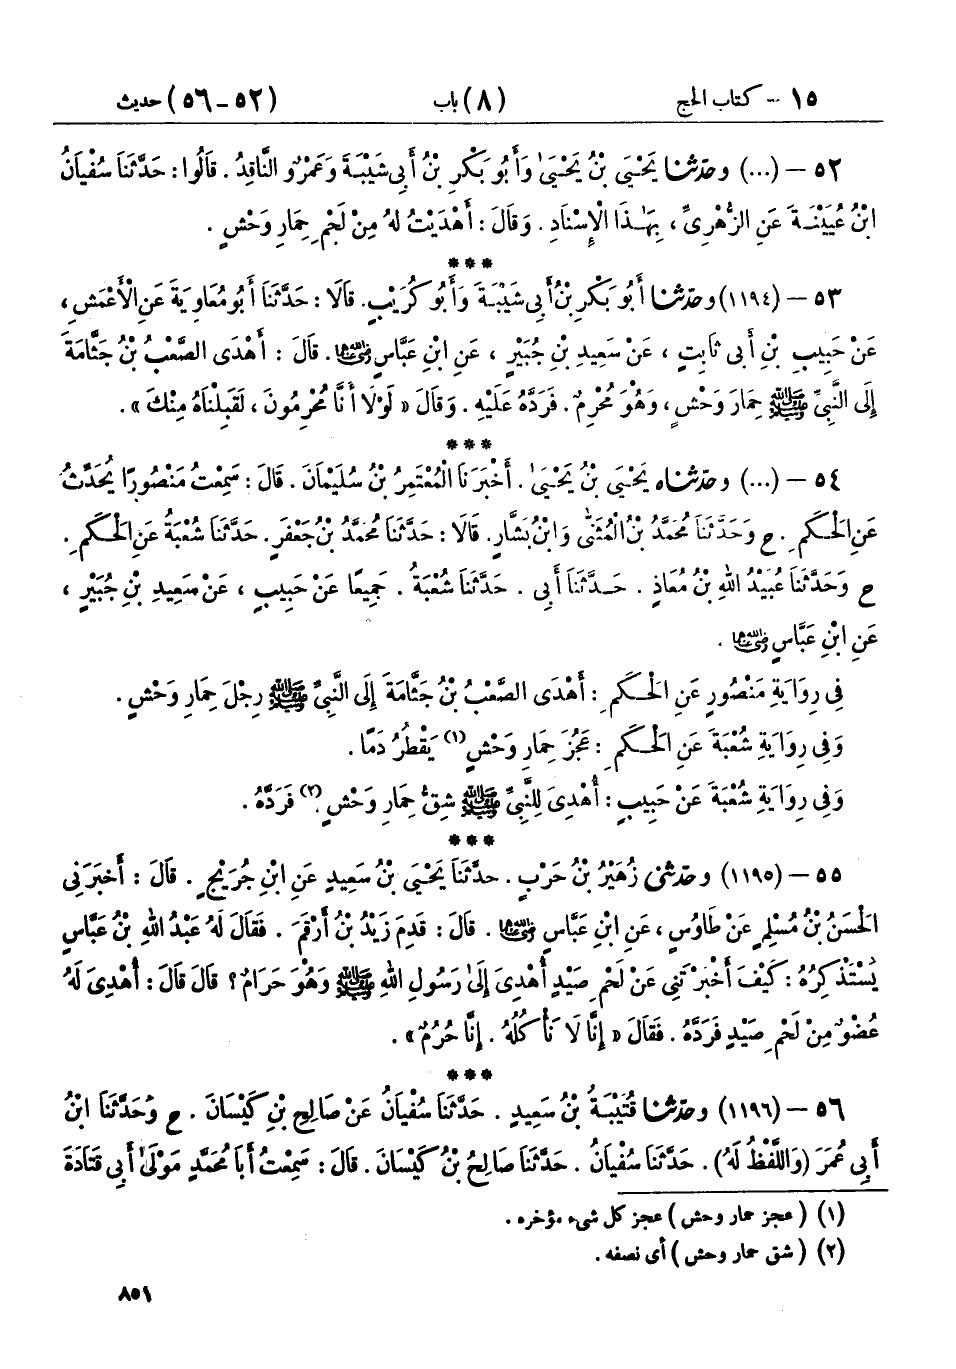 ١٥ - كتاب الحج (٨) باب (٥٢-٥٦) حديث
٥٢ – (...) وحَدَّثَنَا يَحْيَى بْنُ يَحْيَىٰ وَأَبُو بَكْرِ بْنُ أَبِي شَيْبَةَ وَعَمْرٌو النَّاقِدُ . قَالُوا : حَدَّثَنَا سُفْيَانُ
ابْنُ عُيَيْنَةَ عَنِ الزُّهْرِىِّ ، بِهَـٰذَا الْإِسْنَادِ . وَقَالَ : أَهْدَيْتُ لَهُ مِنْ لَحْمِ حِمَارِ وَحْشٍ .
***
٥٣ – (١١٩٤) وحَدَّثَنَا أَبُو بَكْرِ بْنُ أَبِي شَيْبَةَ وَأَبُو كُرَيْبٍ. قَالَا : حَدَّثَنَا أَبُو مُعَاوِيَةَ عَنِ الْأَعْمَشِ ،
عَنْ حَبِيبِ بْنِ أَبِي ثَابِتٍ ، عَنْ سَعِيدِ بْنِ جُبَيْرٍ ، عَنِ ابْنِ عَبَّاسٍ رضي الله عنهما . قَالَ : أَهْدَى الصَّعْبُ بْنُ جَثَّامَةَ
إِلَى النَّبِيِّ ﷺ حِمَارَ وَحْشٍ ، وَهُوَ مُحْرِمٌ . فَرَدَّهُ عَلَيْهِ . وَقَالَ « لَوْلَا أَنَّا مُحْرِمُونَ ، لَقَبِلْنَاهُ مِنْكَ » .
***
٥٤ – (...) وحَدَّثَنَاه يَحْيَى بْنُ يَحْيَىٰ . أَخْبَرَنَا الْمُعْتَمِرُ بْنُ سُلَيْمَانَ . قَالَ : سَمِعْتُ مَنْصُورًا يُحَدِّثُ
عَنِ الْحَكَمِ . ح وَحَدَّثَنَا مُحَمَّدُ بْنُ الْمُثَنَّىٰ وَابْنُ بَشَّارٍ. قَالَا : حَدَّثَنَا مُحَمَّدُ بْنُ جَعْفَرٍ. حَدَّثَنَا شُعْبَةُ عَنِ الْحَكَمِ .
ح وَحَدَّثَنَا عُبَيْدُ اللهِ بْنُ مُعَاذٍ . حَدَّثَنَا أَبِي . حَدَّثَنَا شُعْبَةُ . جَمِيعًا عَنْ حَبِيبٍ ، عَنْ سَعِيدِ بْنِ جُبَيْرٍ ،
عَنِ ابْنِ عَبَّاسٍ رضي الله عنهما .
فِي رِوَايَةِ مَنْصُورٍ عَنِ الْحَكَمِ : أَهْدَى الصَّعْبُ بْنُ جَثَّامَةَ إِلَى النَّبِيِّ ﷺ رِجْلَ حِمَارِ وَحْشٍ .
وَفِي رِوَايَةِ شُعْبَةَ عَنِ الْحَكَمِ : عَجُزَ حِمَارِ وَحْشٍ (١) يَقْطُرُ دَمًا .
وَفِي رِوَايَةِ شُعْبَةَ عَنْ حَبِيبٍ : أُهْدِىَ لِلنَّبِيِّ ﷺ شِقُّ حِمَارِ وَحْشٍ (٢). فَرَدَّهُ .
***
٥٥ – (١١٩٥) وحَدَّثَنِي زُهَيْرُ بْنُ حَرْبٍ . حَدَّثَنَا يَحْيَىٰ بْنُ سَعِيدٍ عَنِ ابْنِ جُرَيْجٍ . قَالَ : أَخْبَرَنِي
الْحَسَنُ بْنُ مُسْلِمٍ عَنْ طَاوُسٍ ، عَنِ ابْنِ عَبَّاسٍ رضي الله عنهما . قَالَ : قَدِمَ زَيْدُ بْنُ أَرْقَمَ . فَقَالَ لَهُ عَبْدُ اللهِ بْنُ عَبَّاسٍ
يَسْتَذْكِرُهُ : كَيْفَ أَخْبَرْتَنِي عَنْ لَحْمِ صَيْدٍ أُهْدِىَ إِلَىٰ رَسُولِ اللهِ ﷺ وَهُوَ حَرَامٌ ؟ قَالَ قَالَ : أُهْدِىَ لَهُ
عُضْوٌ مِنْ لَحْمِ صَيْدٍ فَرَدَّهُ . فَقَالَ « إِنَّا لَا نَأْكُلُهُ . إِنَّا حُرُمٌ » .
***
٥٦ – (١١٩٦) وحَدَّثَنَا قُتَيْبَةُ بْنُ سَعِيدٍ . حَدَّثَنَا سُفْيَانُ عَنْ صَالِحِ بْنِ كَيْسَانَ . ح وَحَدَّثَنَا ابْنُ
أَبِي عُمَرَ (وَاللَّفْظُ لَهُ) . حَدَّثَنَا سُفْيَانُ . حَدَّثَنَا صَالِحُ بْنُ كَيْسَانَ . قَالَ : سَمِعْتُ أَبَا مُحَمَّدٍ مَوْلَىٰ أَبِي قَتَادَةَ
(١) ( عجز حمار وحش ) عجز كل شىء مؤخره .
(٢) ( شق حمار وحش ) أى نصفه .
٨٥١